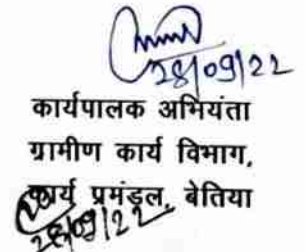 28/09/22
कार्यपालक अभियंता
ग्रामीण कार्य विभाग,
कार्य प्रमंडल, बेतिया
28/09/22